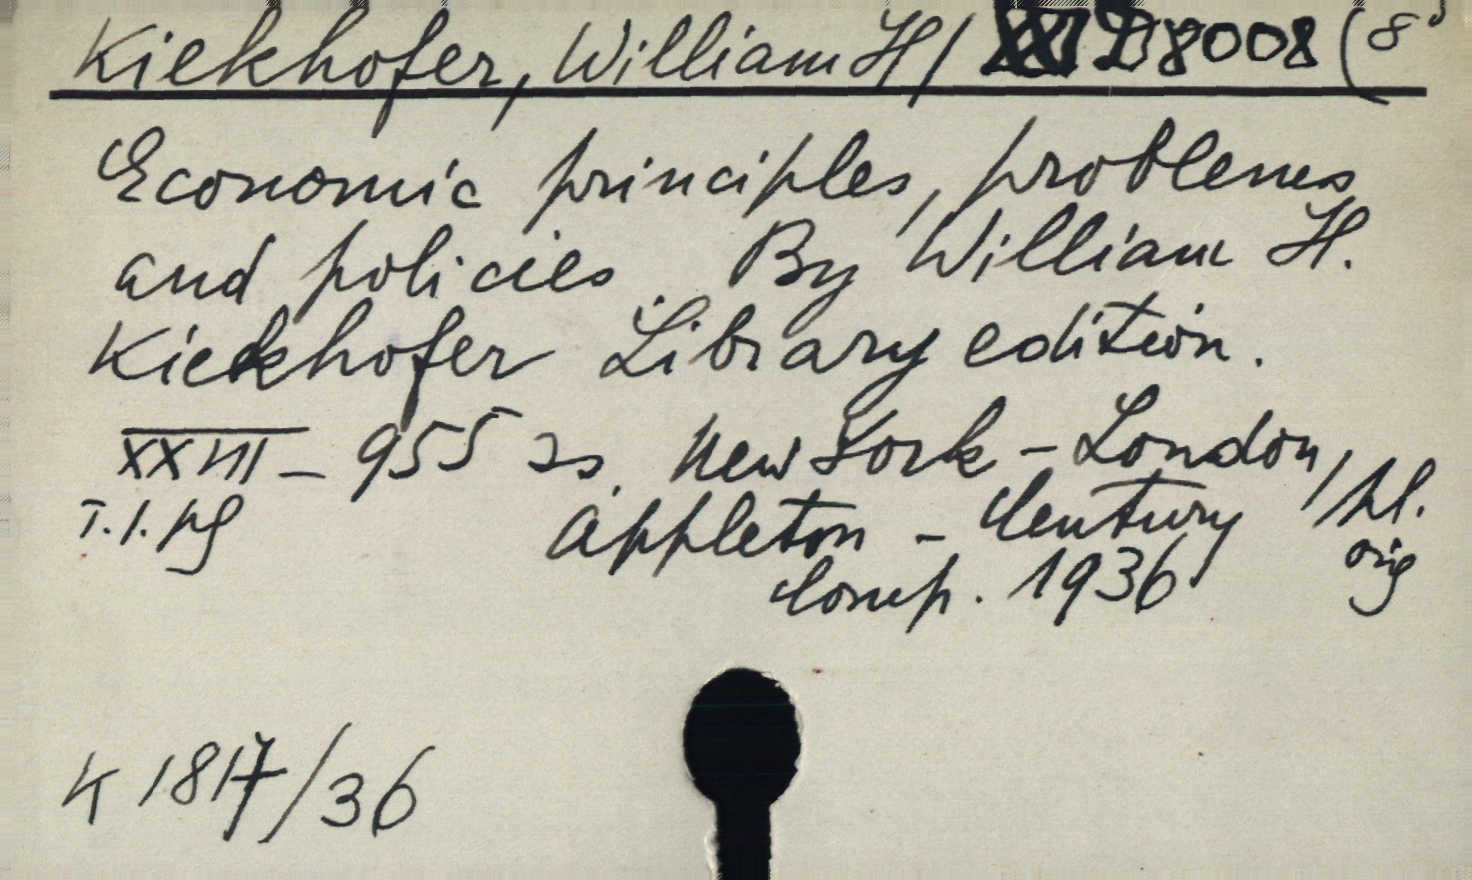 Kiekhofer, William H/ D 8008 (8°
Economic principles, problems
and policies. By William H.
Kiekhofer Library edition.
XXVIII – 955 s. New York – London,
Appleton – Century
Comp. 1936
K 1817/36